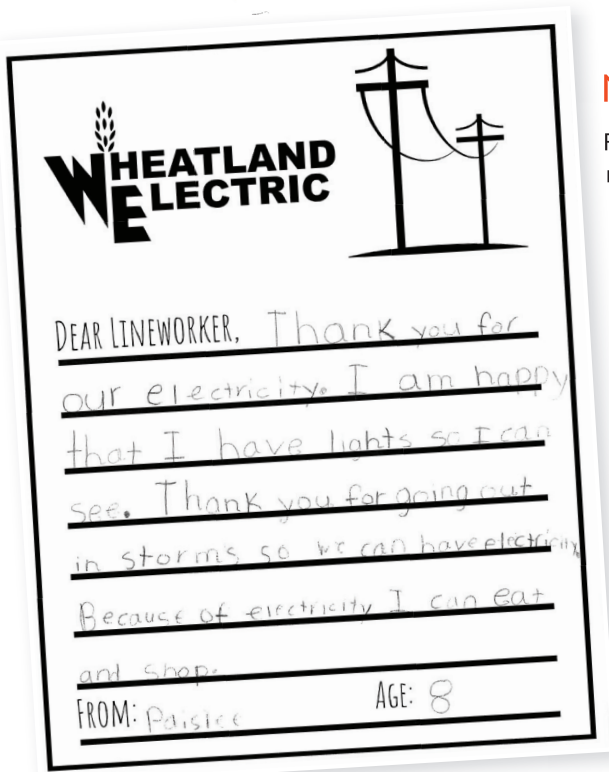 WHEATLAND
ELECTRIC
DEAR LINEWORKER, Thank you for
our electricity. I am happy
that I have lights so I can
see. Thank you for going out
in storms so we can have electricity.
Because of electricity I can eat
and shop.
FROM: AGE: 8